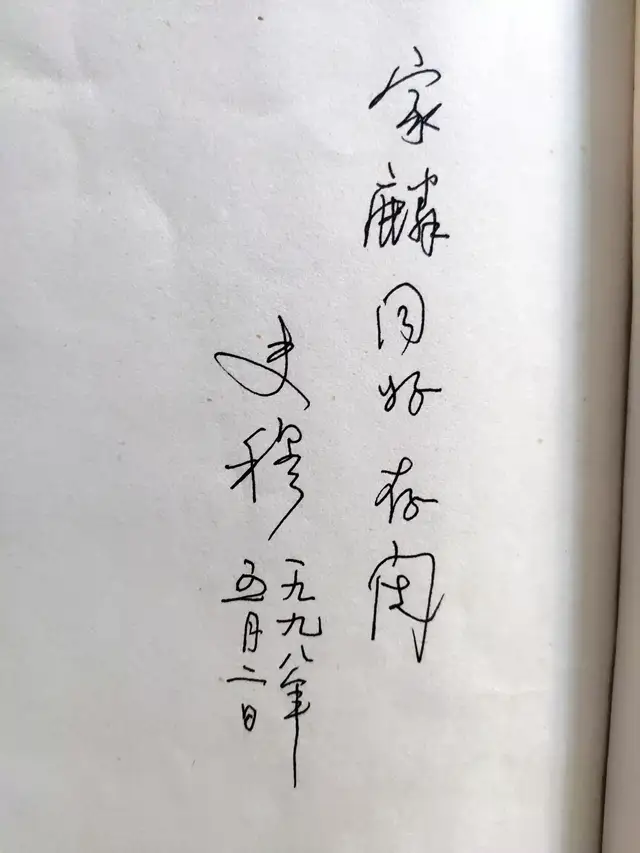 家麟同好存阅
史穆
一九九八年
五月二日